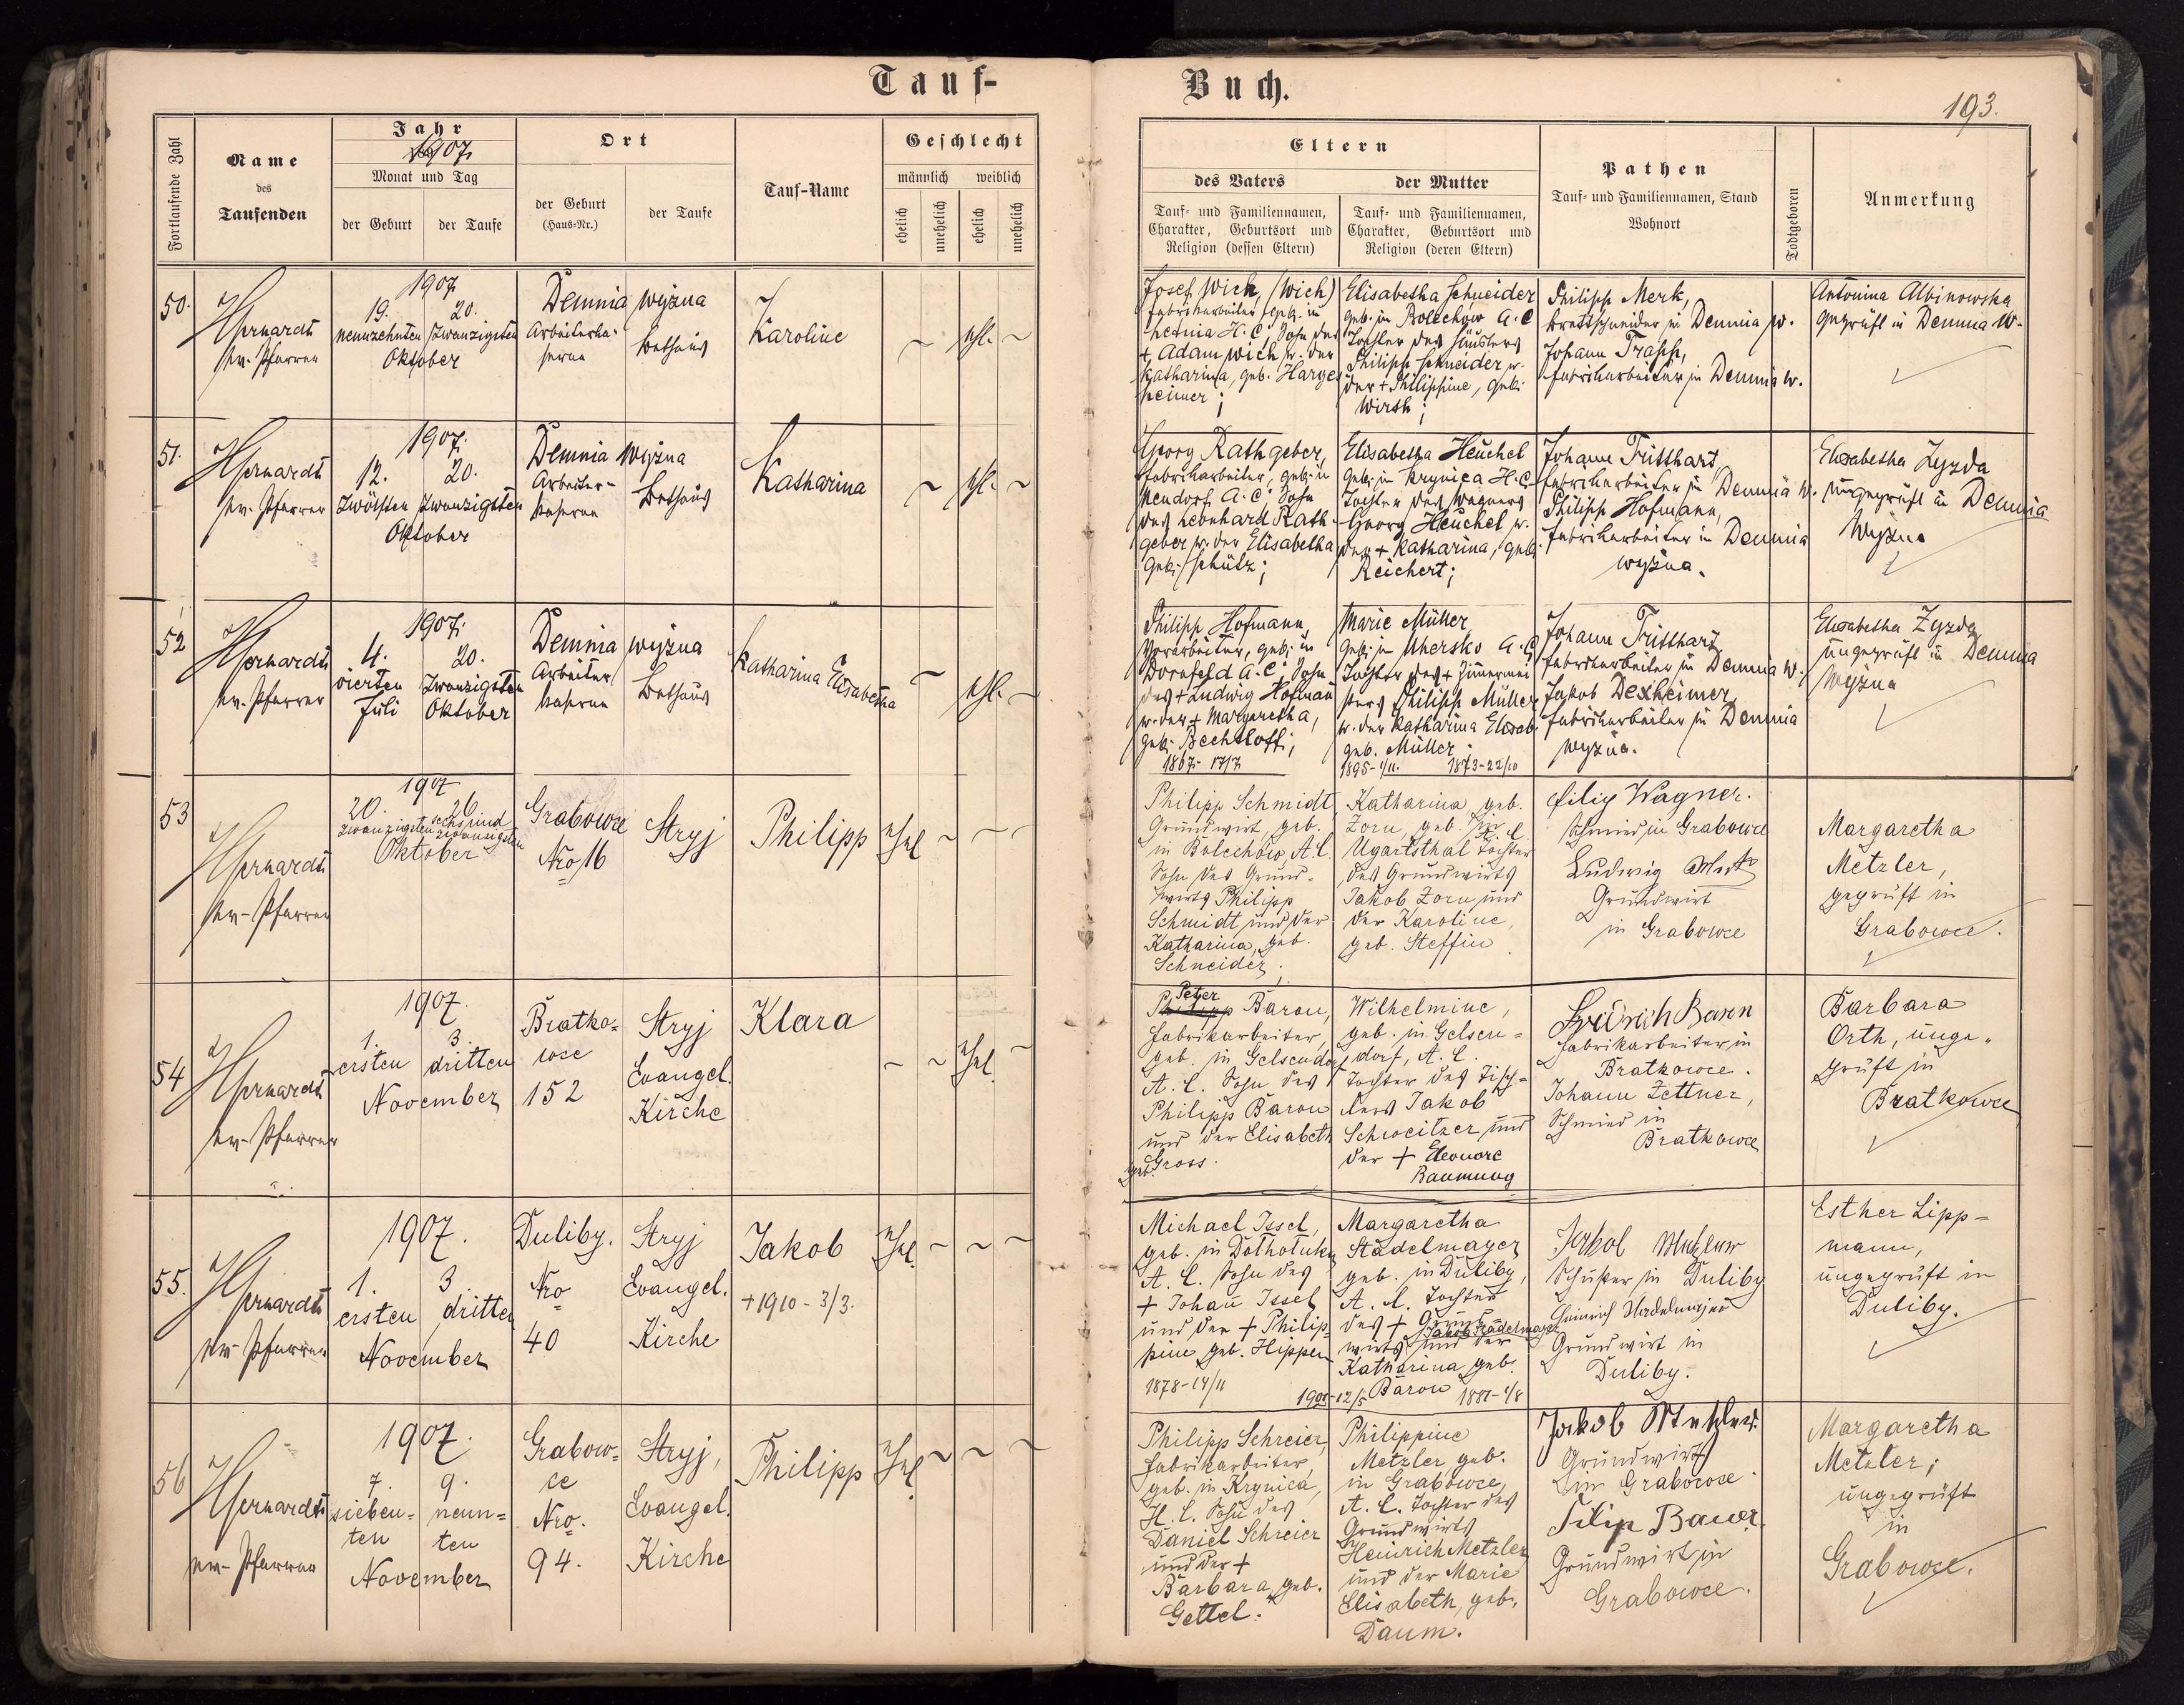 Tauf-
Buch.
193.
Fortlaufende Zahl
Name
des
Taufenden
Jahr
1907.
Monat und Tag
der Geburt
der Taufe
Ort
der Geburt
(Haus-Nr.)
der Taufe
Tauf-Name
Geschlecht
männlich
weiblich
ehelich
unehelich
ehelich
unehelich
Eltern
des Vaters
Tauf- und Familiennamen,
Charakter, Geburtsort und
Religion (dessen Eltern)
der Mutter
Tauf- und Familiennamen,
Charakter, Geburtsort und
Religion (deren Eltern)
Pathen
Tauf- und Familiennamen, Stand
Wohnort
Todtgeboren
Anmerkung
50.
ev. Pfarrer
1907.
19. 20.
neunzehnten Zwanzigsten
Oktober
Demnia wyżna
Arbeiterka-
serne
Bethaus
Karoline
~ ehl. ~
Josef Wich, (Wich)
Fabrikarbeiter, geb. in
H.C., Sohn des
+ Adam Wich u. der
Katharina, geb. Harges
heimer;
Elisabetha Schneider
geb. in Bolechow A.C
Tochter des Häuslers
Philipp Schneider u.
der + Philippine, geb.
Wirth;
Philipp Merk,
Brettschneider in Demnia w.
Johann Trapp,
Fabrikarbeiter in Demnia w.
Antonina Albinowska
geprüft in Demnia W.
51.
ev. Pfarrer
1907.
12. 20.
Zwölften Zwanzigsten
Oktober
Demnia Wyżna
Arbeiter-
kaserne
Bethaus
Katharina
~ ehl. ~
Georg Rathgeber,
Fabrikarbeiter, geb. in
Neudorf A.C. Sohn
des Leonhard Rath-
geber u. der Elisabetha
geb. Schütz;
Elisabetha Heuchel
geb. in Krynica H.C.
Tochter des Wagners
Georg Heuchel u.
der + Katharina, geb.
Reichert;
Johann Tritthart
Fabrikarbeiter in Demnia w.
Philipp Hofmann,
Fabrikarbeiter in Demnia
wyżna.
Elisabetha Zyzda
ungeprüft in Demnia
Wyżna
52
ev. Pfarrer
1907.
4. 20.
vierten Zwanzigsten
Juli Oktober
Demnia wyżna
Arbeiter
kaserne
Bethaus
Katharina Elisabetha
~ ehl. ~
Philipp Hofmann
Vorarbeiter, geb. in
Dornfeld A.C. Sohn
des + Ludwig Hofmann
u. der + Margaretha,
geb. Bechtloff;
1867- 17/7.
Marie Müller
geb. in Uhersko A.C
Tochter des + Zimmermei
sters Philipp Müller
u. der Katharina Elisab.
geb. Müller;
1895-1/11. 1873-22/10
Johann Tritthart
Fabrikarbeiter in Demnia w.
Jakob Dexheimer,
Fabrikarbeiter in Demnia
wyżna.
Elisabetha Zyzda
ungeprüft in Demnia
Wyżna
53
ev. Pfarrer
1907
20. 26
zwanzigsten sechsund
zwanzigsten
Oktober
Grabowce
Nro 16
Stryj
Philipp
Ehel ~ ~ ~
Philipp Schmidt
Grundwirt, geb.
in Bolechów, A.C.
Sohn des Grund-
wirts Philipp
Schmidt und der
Katharina, geb.
Schneider;
Katharina, geb.
Zorn, geb. in
Ugartsthal A.C. Tochter
des Grundwirts
Jakob Zorn und
der Karoline,
geb. Steffin
Filip Wagner.
Schmied in Grabowce
Ludwig
Grundwirt
in Grabowce
Margaretha
Metzler,
geprüft in
Grabowce.
54
ev. Pfarrer
1907.
1. 3.
ersten dritten
November
Bratko-
wce
152
Stryj
Evangel.
Kirche
Klara
~ ~ Ehel. ~
Peter
Philipp Baron,
Fabrikarbeiter,
geb. in Gelsendorf
A.C. Sohn des
Philipp Baron
und der Elisabeth
geb. Gross.
Wilhelmine,
geb. in Gelsen-
dorf, A.C.
Tochter des Tisch-
lers Jakob
Schweitzer und
der + Eleonore
Baumung
Fridrich Baron
Fabrikarbeiter in
Bratkowce.
Johann Zettner,
Schmied in
Bratkowce
Barbara
Orth, unge-
prüft in
Bratkowce
55.
ev. Pfarrer
1907.
1. 3.
ersten dritten
November
Duliby.
Nro
40
Stryj
Evangel.
Kirche
Jakob
+ 1910 - 3/3.
Ehel. ~ ~ ~
Michael Issel,
geb. in
A.C. Sohn des
+ Johan Issel
und der + Philip-
pine geb. Hippen
1878-14/11
Margaretha
Stadelmayer
geb. in Duliby,
A.C. Tochter
des + Grund-
Jakob Stadelmayer
wirts und der
Katharina geb.
Baron
1905-12/5 1881-1/8
Jakob Metzler
Schuster in Duliby
Heinrich Stadelmajer
Grundwirt in
Duliby.
Esther Lipp-
mann,
ungeprüft in
Duliby.
56
ev. Pfarrer
1907.
7. 9.
sieben- neun-
ten ten
November
Grabow-
ce
Nro.
94.
Stryj,
Evangel.
Kirche
Philipp
Ehel. ~ ~ ~
Philipp Schreier,
Fabrikarbeiter,
geb. in Krynica,
H.C. Sohn des
Daniel Schreier
und der +
Barbara, geb.
Gettel.
Philippine
Metzler geb.
in Grabowce,
A.C. Tochter des
Grundwirts
Heinrich Metzler
und der Marie
Elisabeth, geb.
Daum.
Jakob Metzler
Grundwirt
in Grabowce.
Filip Bauer.
Grundwirt in
Grabowce.
Margaretha
Metzler;
ungeprüft
in
Grabowce.